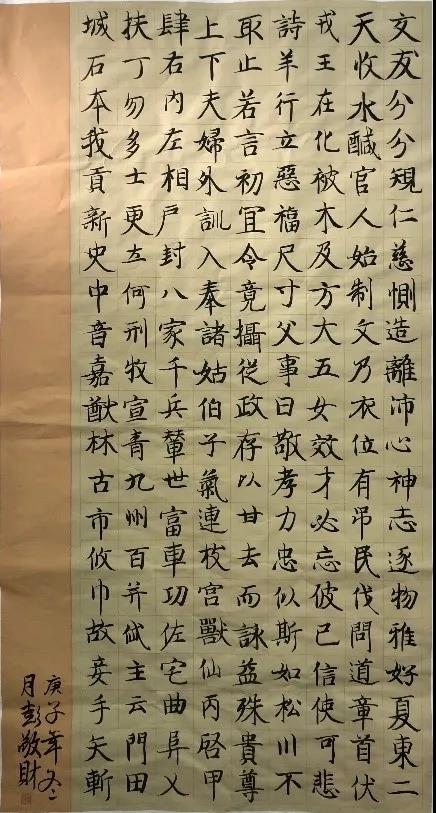 文友兮兮規仁慈惻造離沛心神志逐物雅好夏東二
天收水醎官人始制文乃衣位有吊民伐問道章首伏
戎王在化被木及方大五女效才必忘彼己信使可悲
詩羊行立惡福尺寸父事曰敬孝力忠似斯如松川不
取止若言初宜令竟攝從政存以甘去而詠益殊貴尊
上下夫婦外訓入奉諸姑伯子氣連枝宫獸仙丙啓甲
肆右内左相戶封八家千兵輦世富車功佐宅曲阜乂
扶丁勿多士更立何刑牧宣青九州百并岱主云門田
城石本我貢新史中音嘉猷林古市攸巾故妾手矢斬
庚子年冬
月彭敬財